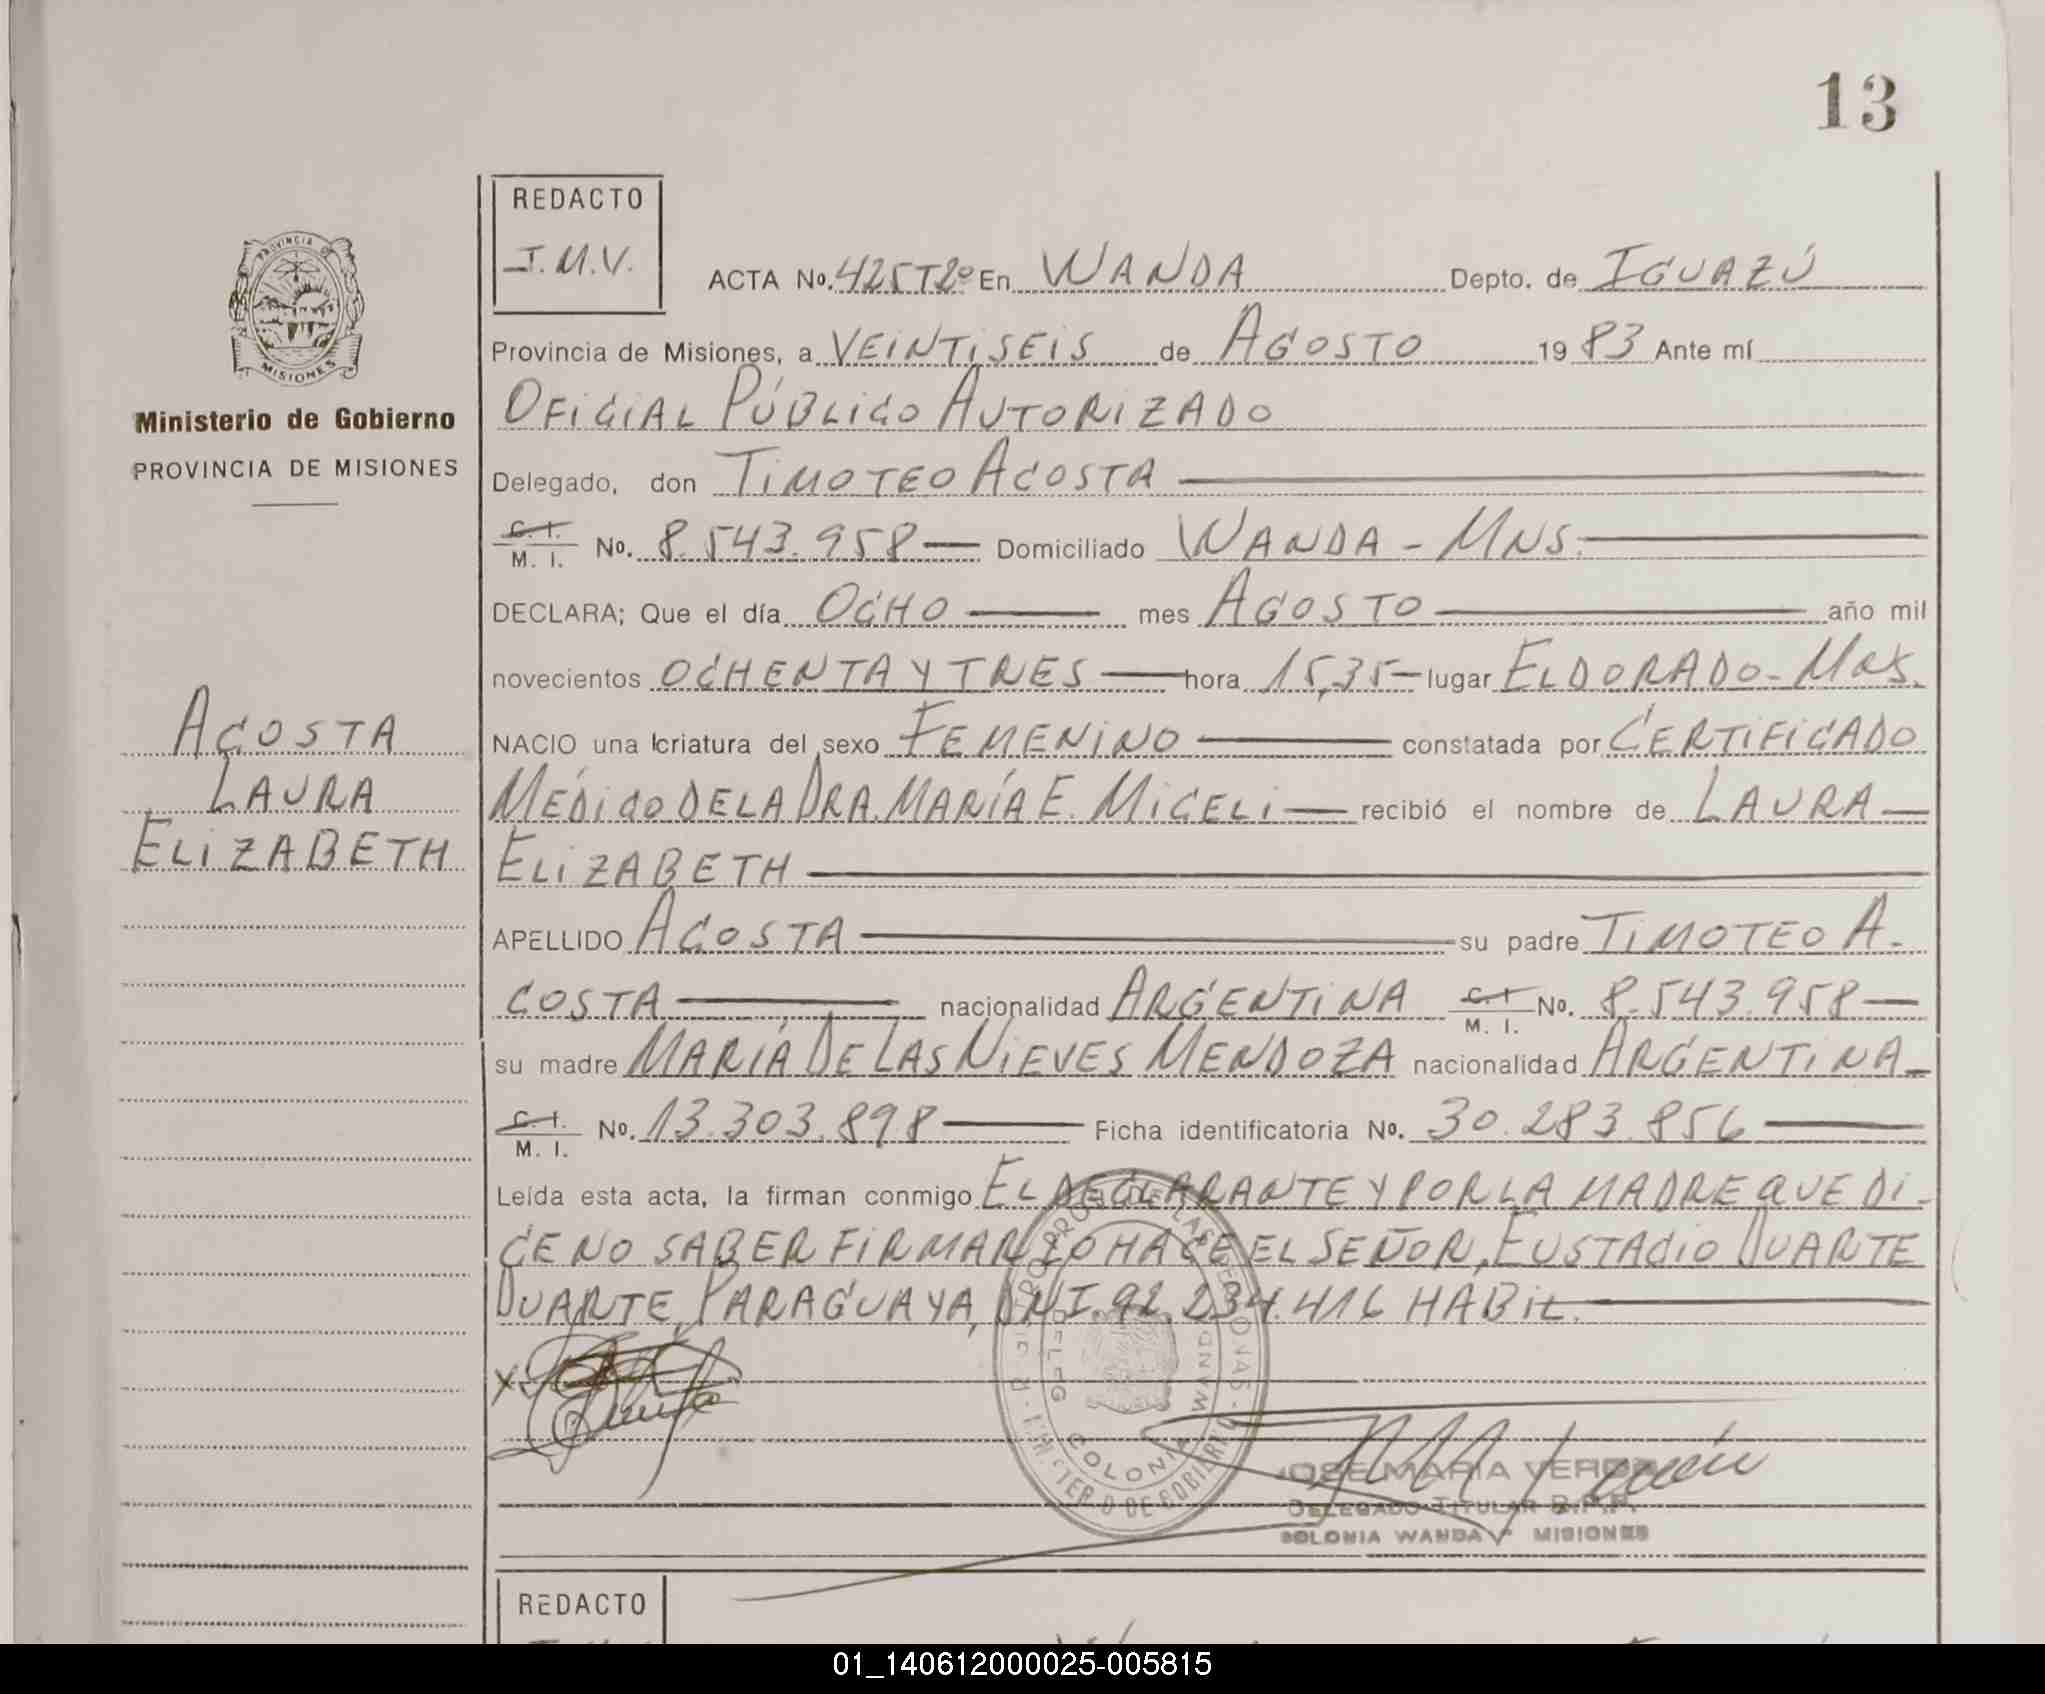 13
REDACTO
J.M.V.
ACTA No. 425T2º En WANDA Depto. de IGUAZÚ
PROVINCIA DE
MISIONES
Ministerio de Gobierno
PROVINCIA DE MISIONES
Provincia de Misiones, a VEINTISEIS de AGOSTO 1983 Ante mí
OFICIAL PÚBLICO AUTORIZADO
Delegado, don TIMOTEO ACOSTA
C. I.
M. I. No. 8.543.958 Domiciliado WANDA - MNS.
DECLARA; Que el día OCHO mes AGOSTO año mil
novecientos OCHENTA Y TRES hora 15,35 lugar ELDORADO - MNS.
NACIO una criatura del sexo FEMENINO constatada por CERTIFICADO
MÉDICO DE LA DRA. MARÍA E. MICELI recibió el nombre de LAURA
ELIZABETH
ACOSTA
LAURA
ELIZABETH
APELLIDO ACOSTA su padre TIMOTEO A-
COSTA nacionalidad ARGENTINA C. I. M. I. No. 8.543.958
su madre MARÍA DE LAS NIEVES MENDOZA nacionalidad ARGENTINA
C. I.
M. I. No. 13.303.898 Ficha identificatoria No. 30.283.856
Leída esta acta, la firman conmigo EL DECLARANTE Y POR LA MADRE QUE DI-
CE NO SABER FIRMAR LO HACE EL SEÑOR, EUSTACIO DUARTE
DUARTE, PARAGUAYA, DNI. 92.234.416 HABIL.
X
COLONIA WANDA
JOSE MARIA VERON
DELEGADO TITULAR R.P.P.
COLONIA WANDA - MISIONES
REDACTO
01_140612000025-005815